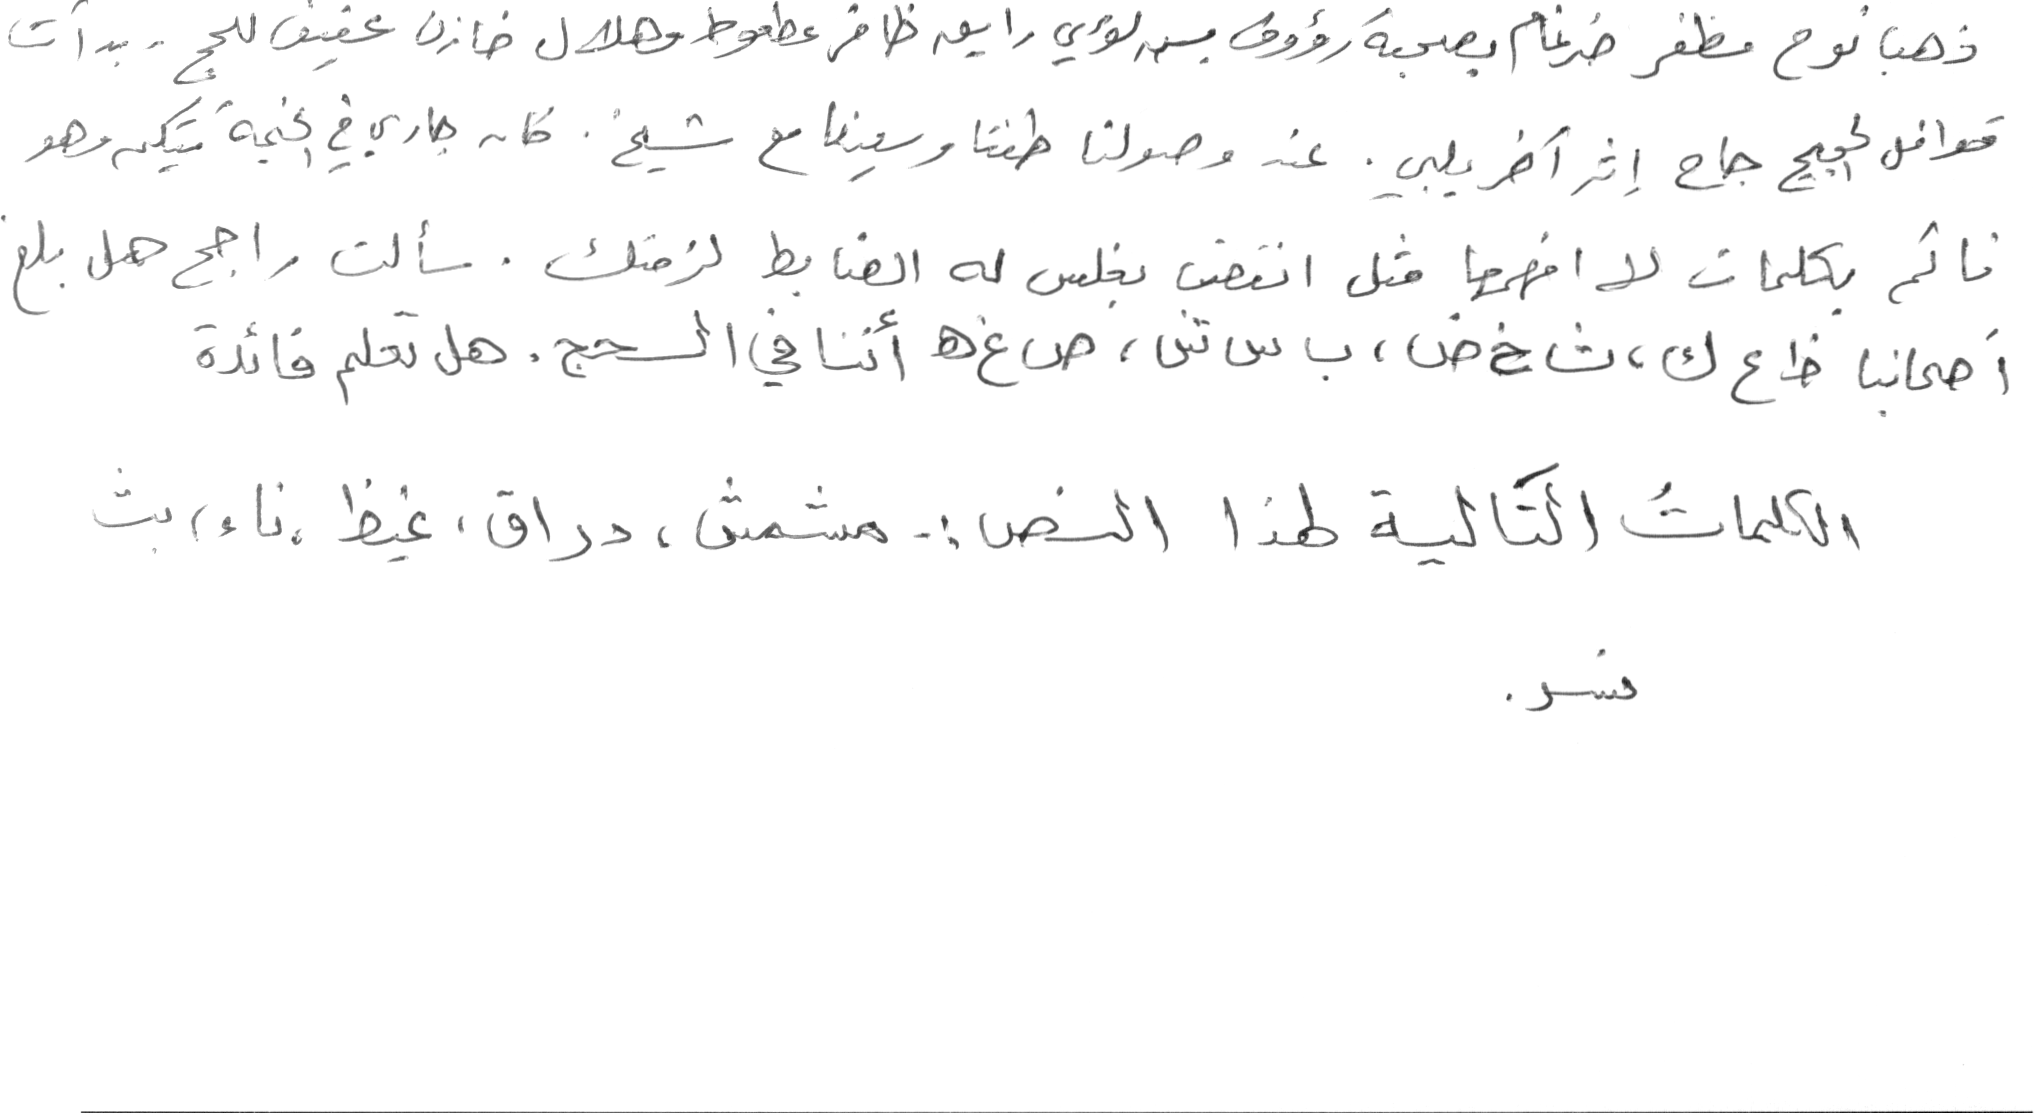 ذهبا نوح مظفر ضرغام بصحبة رؤوف بن لؤي رايق ظافر عطعوط وهلال خازن عفيف للحج. بدأت
قوافل الحجيج حاج إثر آخر يلبي. عند وصولنا طفنا وسعينا مع شيخ. كان جاري في الخيمة يتكلم وهو
نائم بكلمات لا افهمها مثل انتفض بغلس له الضابط لزمتك. سألت راجح هل بلغ
أصحابنا ظ ع ك، ث خ ض، ب س ش، ص غ ه أننا في الحج. هل تعلم فائدة
الكلمات التالية لهذا النص :- مشمش، دراق، غيظ، ناء، بث
نسر.